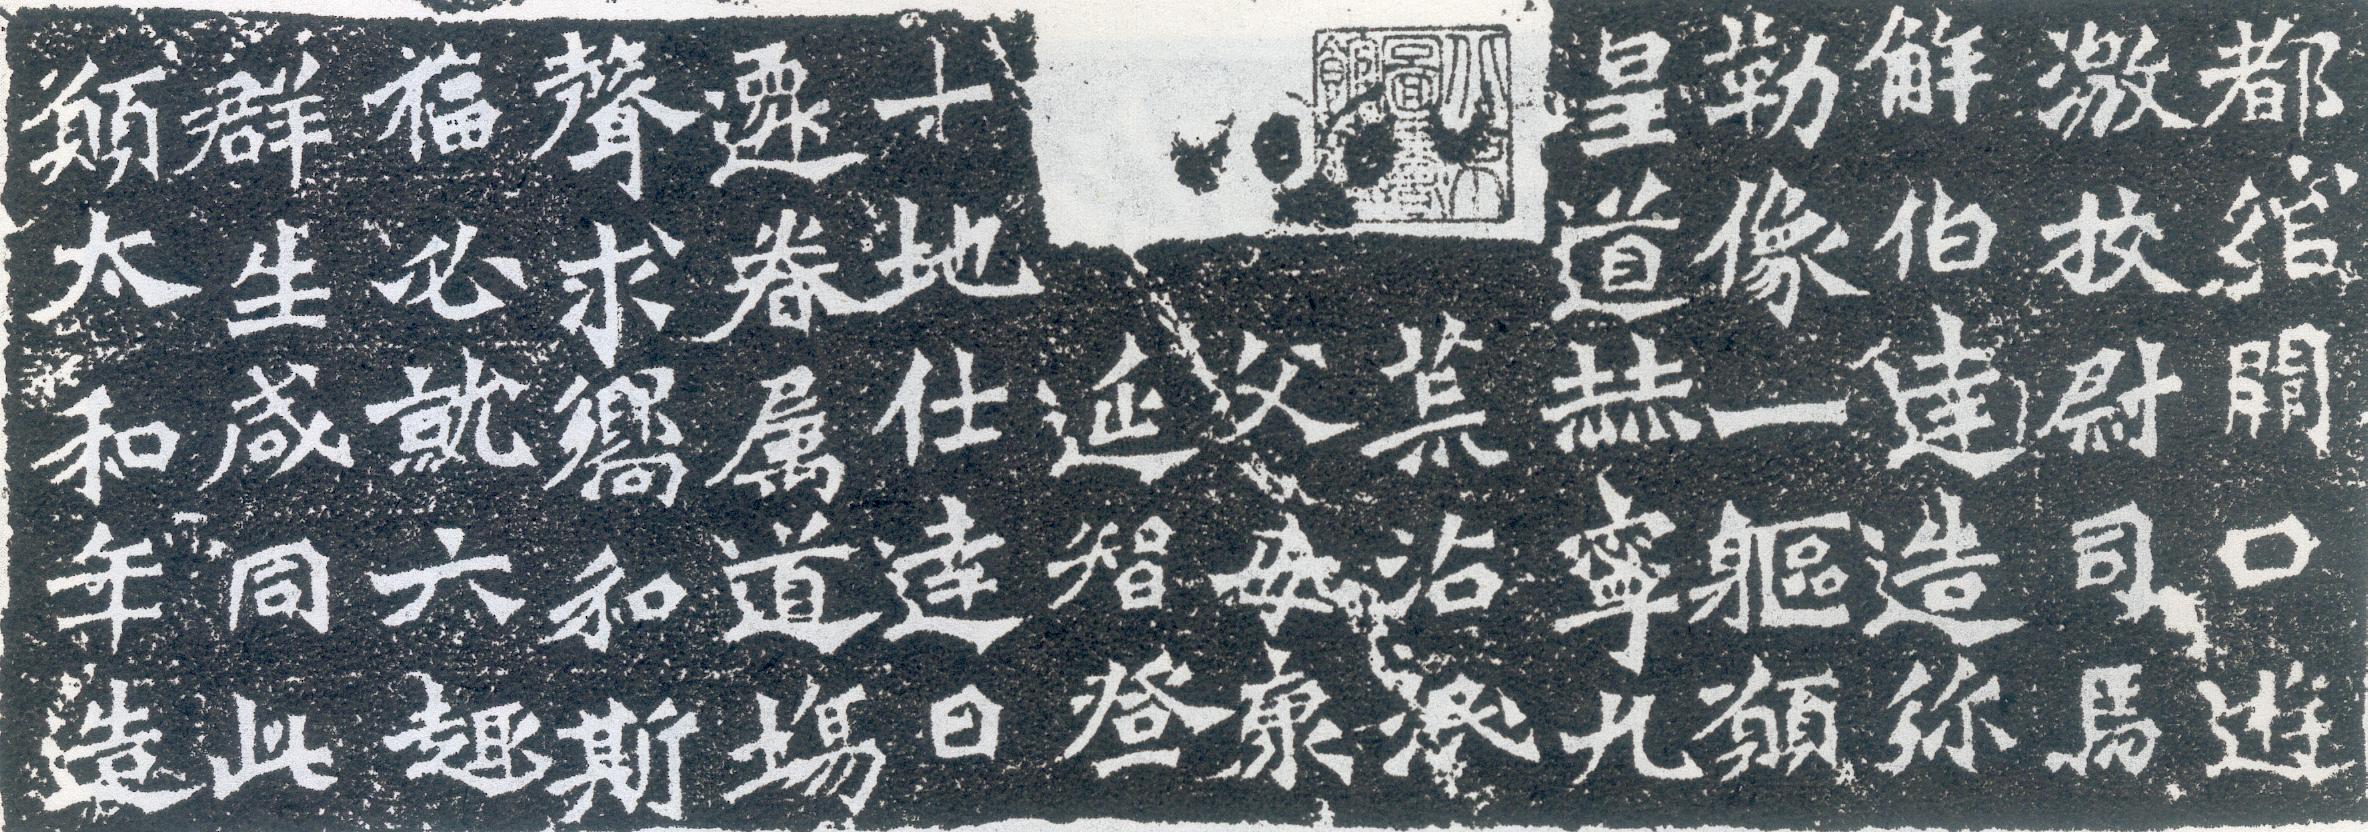 都綰關口遊
激校尉司馬
解伯達造弥
勒像一軀願
皇道赫寧九
荒沾
父母康
延智登
十地仕達日
遷眷属道場
聲求嚮和斯
福必就六趣
群生咸同此
願太和年造